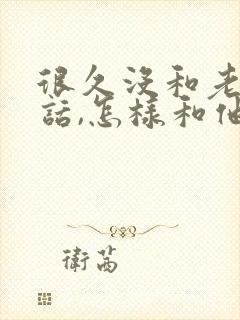 很久没和老
話,怎樣和他
衛茜